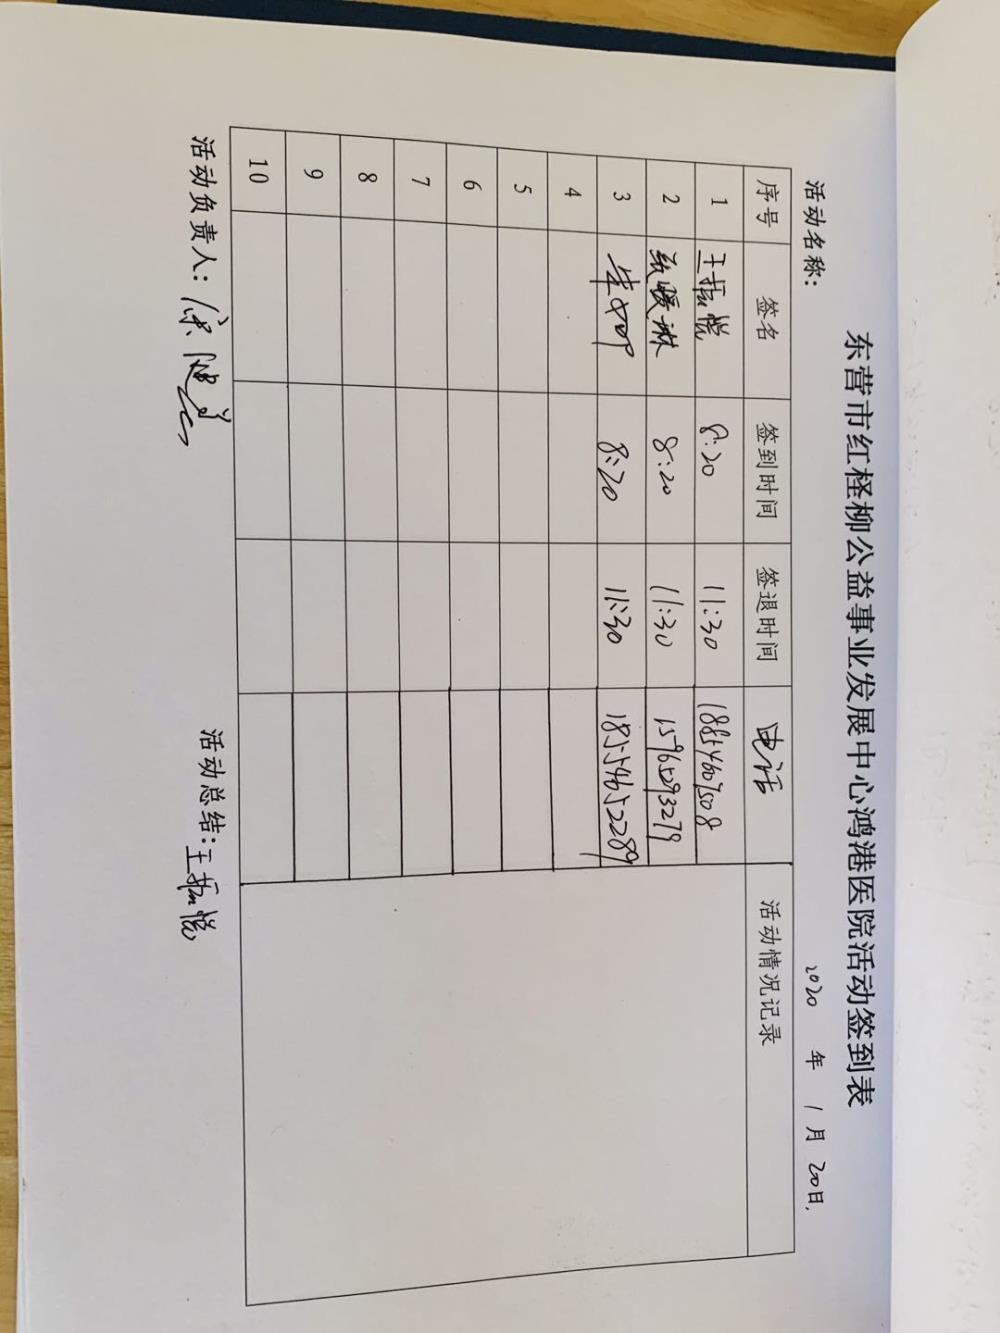 东营市红柽柳公益事业发展中心鸿港医院活动签到表
活动名称: 2020 年 1 月 20日.
序号 签名 签到时间 签退时间 电话 活动情况记录
1 王振悦 8:20 11:30 18854607508
2 暖琳 8:20 11:30 15965293279
3 8:20 11:30 18554652289
4
5
6
7
8
9
10
活动负责人: 活动总结: 王振悦